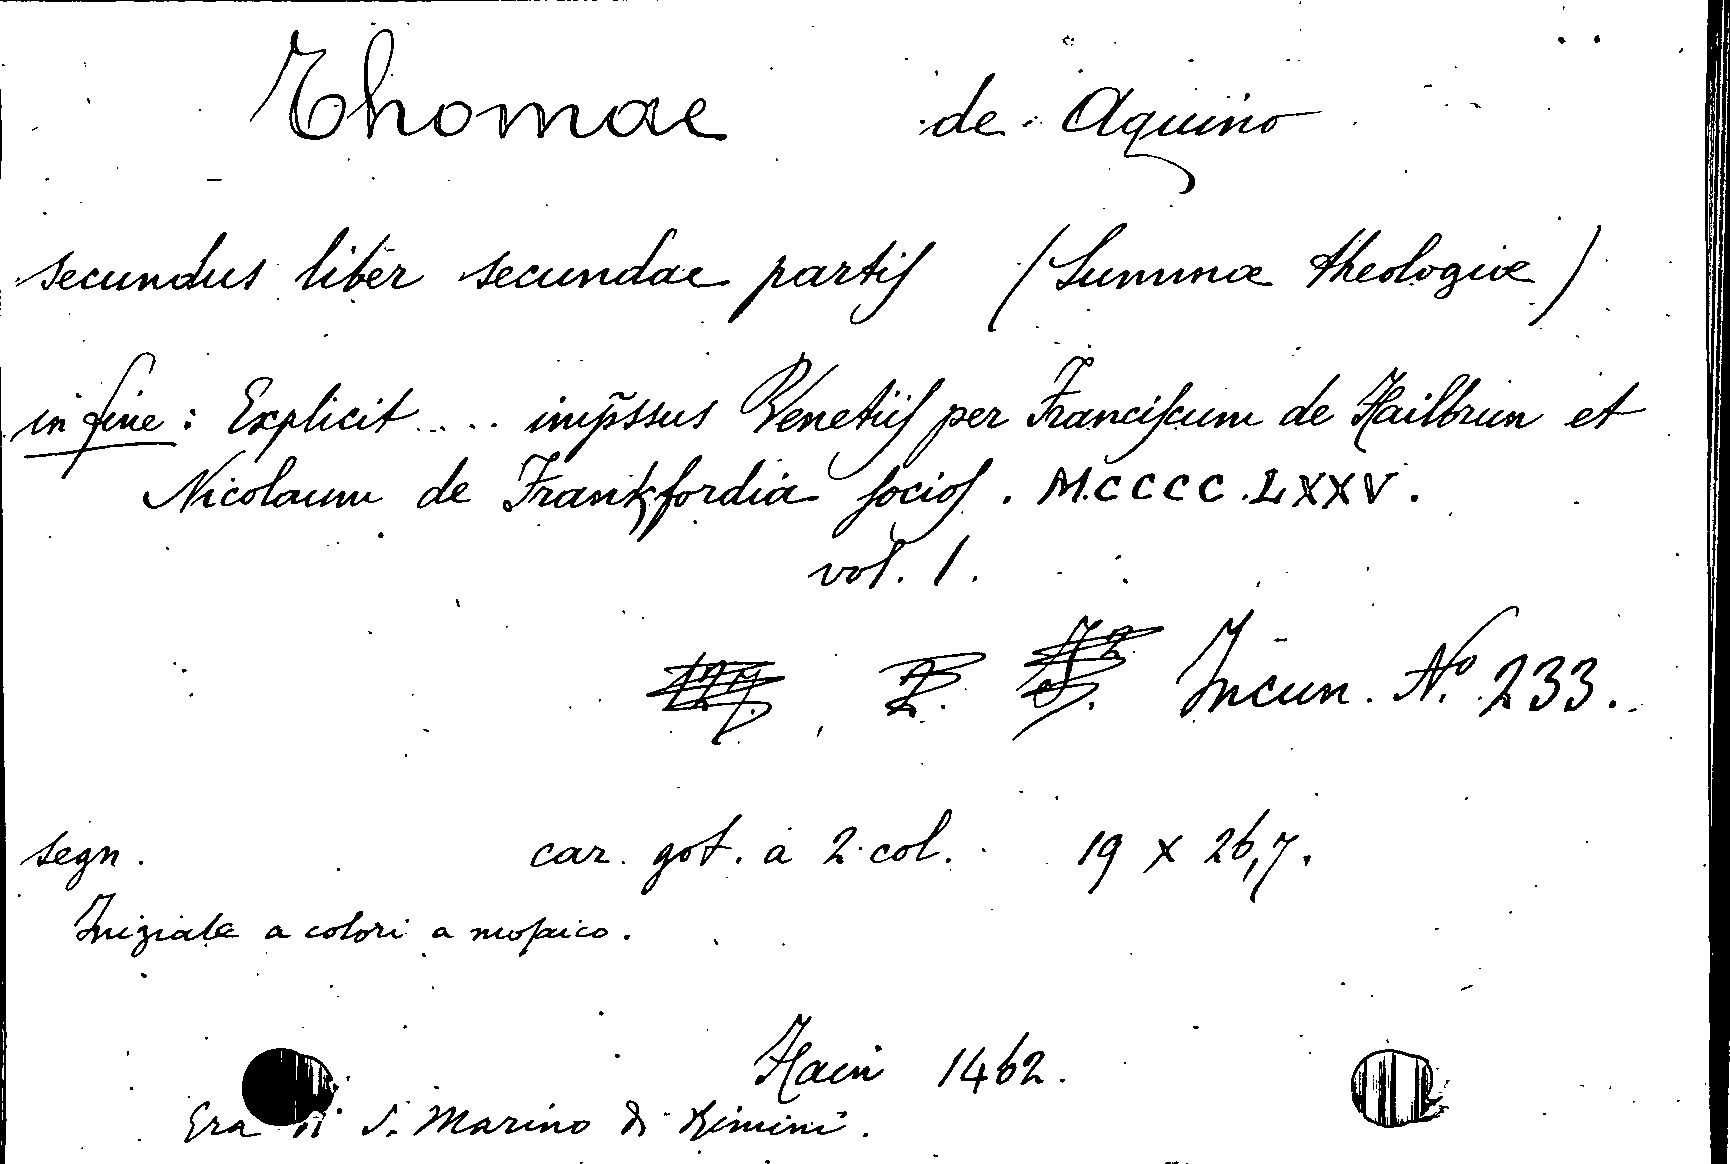 Thomae de Aquino
secundus liber secundae partis (Summae theologiae)
in fine: Explicit .... imp̃ssus Venetiis per Franciscum de Hailbrun et
Nicolaum de Frankfordia socios. M.CCCC.LXXV.
vol. 1.
Incun. Nº 233.
segn. car. got. a 2 col. 19 x 26,7.
Iniziale a colori a mosaico.
Hain 1462.
Era di S. Marino di Rimini.